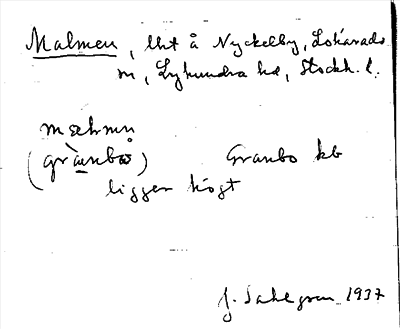 Malmen, lht å Nyckelby, Lohärads
sn, Lyhundra hd, Stockh. l.
mæhmn
(grànbω̊) Granbo kb
ligger högt
J. Sahlgren 1937